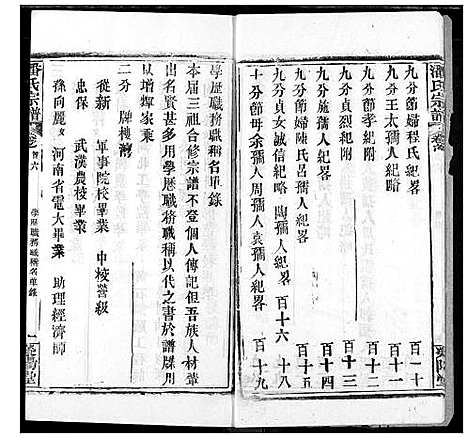 潘氏宗譜
卷
九分節婦程氏紀畧 百一十
九分王太孺人紀畧 百十一
九分節孝紀附 百十二
九分貞節紀畧 百十三
九分施孺人紀畧 百十四
九分節婦陳氏呂孺人紀畧 百十五
九分貞女誠信紀略 陶孺人紀畧 百十六 十八
十分節母余孺人周孺人袁孺人紀畧 百十九
學歷職務職稱名單錄
本届三祖合修宗譜不登個人傳記但吾族人材輩
出名賢甚多用學歷職務職稱以代之書於譜牒用
以增輝家乘
二分 牌樓灣
從新 軍事院校畢業 中校營級
忠保 武漢農校畢業
孫向麗女 河南省電大畢業 助理經濟師
潘氏宗譜
卷首六
學歷職務職稱名單錄
一
滎陽堂